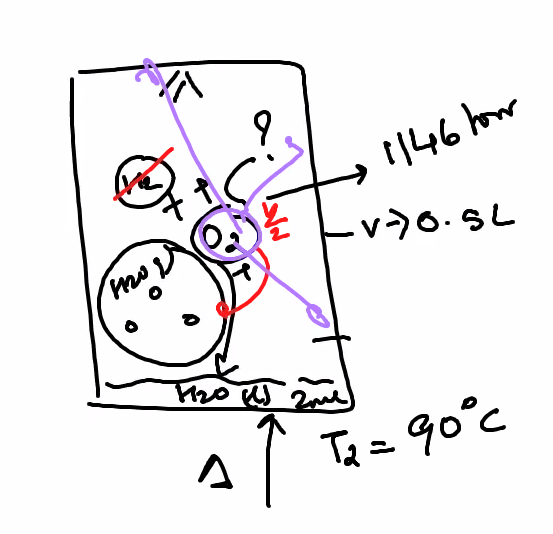 ?
1146 torr
H2
O2
V/2
V → 0.5L
H2O g
H2O (l) 2mL
T2 = 90°C
Δ